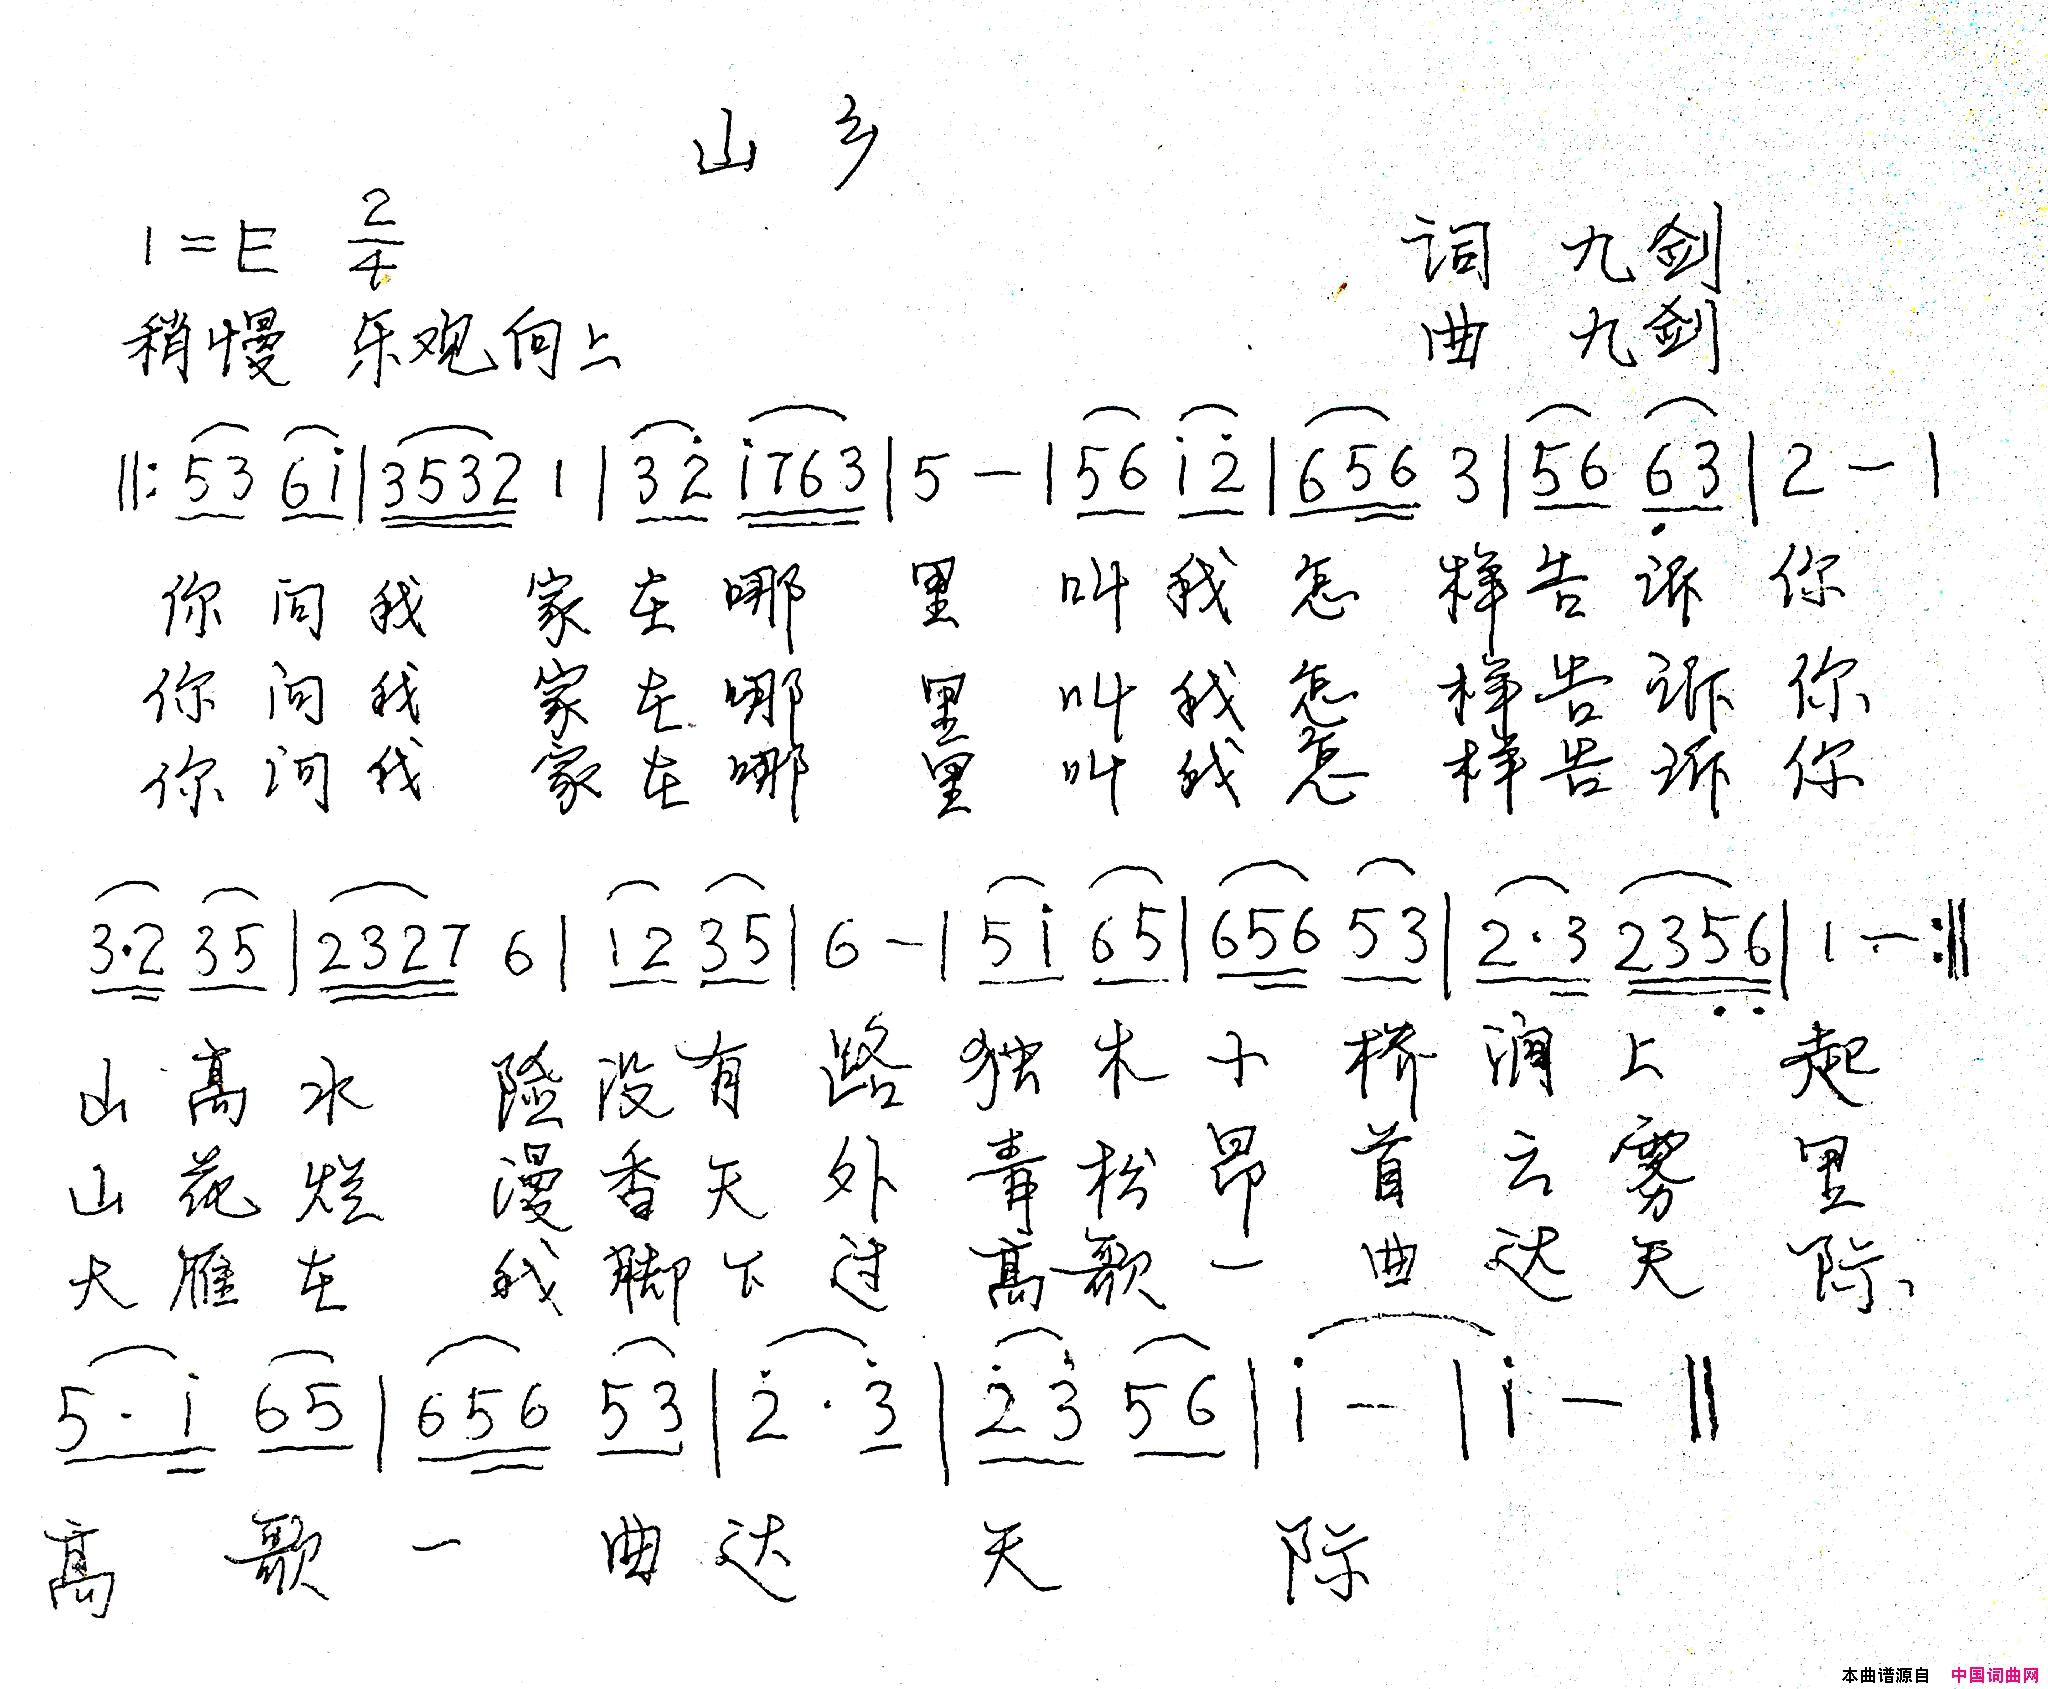 山乡
1=E 2/4 词 九剑
稍慢 乐观向上 曲 九剑
‖: 53 6i | 3532 1 | 32̇ i763 | 5 – | 56 i2̇ | 656 3 | 56 6̣3 | 2 – |
你问我 家在哪 里 叫我怎 样告诉你
你问我 家在哪 里 叫我怎 样告诉你
你问我 家在哪 里 叫我怎 样告诉你
3·2 35 | 2327 6 | 12 35 | 6 – | 5i 65 | 656 53 | 2·3 235̣6̣ | 1 – :‖
山高水 险没有 路 独木小 桥涧上 起
山花烂 漫香天 外 青松昂 首云雾 里
大雁在 我脚下 过 高歌一 曲达天 际
5·i 65 | 656 53 | 2̇·3̇ | 2̇3̇ 56 | i – | i – ‖
高 歌 一 曲达 天 际
本曲谱源自 中国词曲网